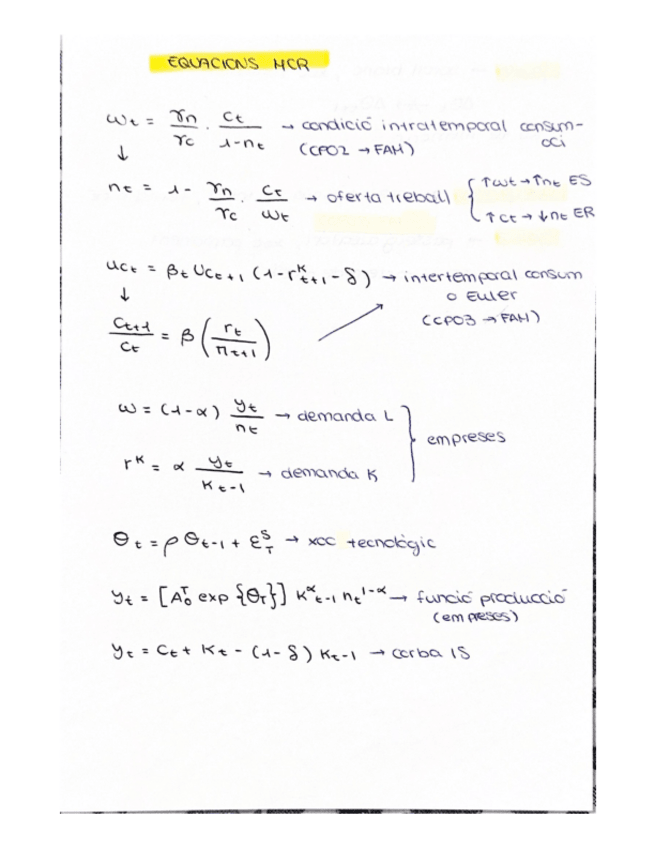 EQUACIONS MCR
ωt = γn/γc · ct/1-nt → condició intratemporal consum-
↓ (CPO2 → FAM) oci
nt = 1 - γn/γc · ct/ωt → oferta treball { ↑wt → ↑nt ES
↑ct → ↓nt ER
uct = βt Uct+1 (1 - r^K t+1 - δ) → intertemporal consum
↓ o Euler
ct+1/ct = β (rt/πt+1) (CPO3 → FAM)
ω = (1-α) yt/nt → demanda L
} empreses
r^K = α yt/Kt-1 → demanda K
θt = ρ θt-1 + ε^S_T → xoc tecnològic
yt = [A^T_0 exp {θT}] K^α t-1 nt^1-α → funció producció
(empreses)
yt = ct + Kt - (1-δ) Kt-1 → corba IS